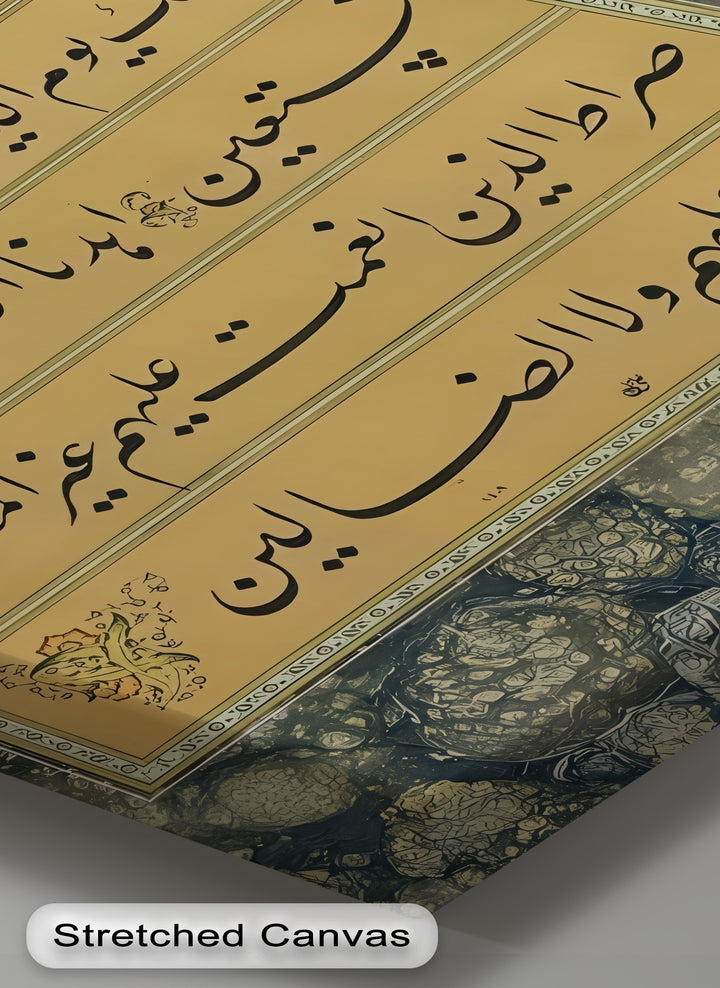 يوم
ستعين اهدنا
صراط الذين انعمت عليهم غير
ولا الضالين
Stretched Canvas